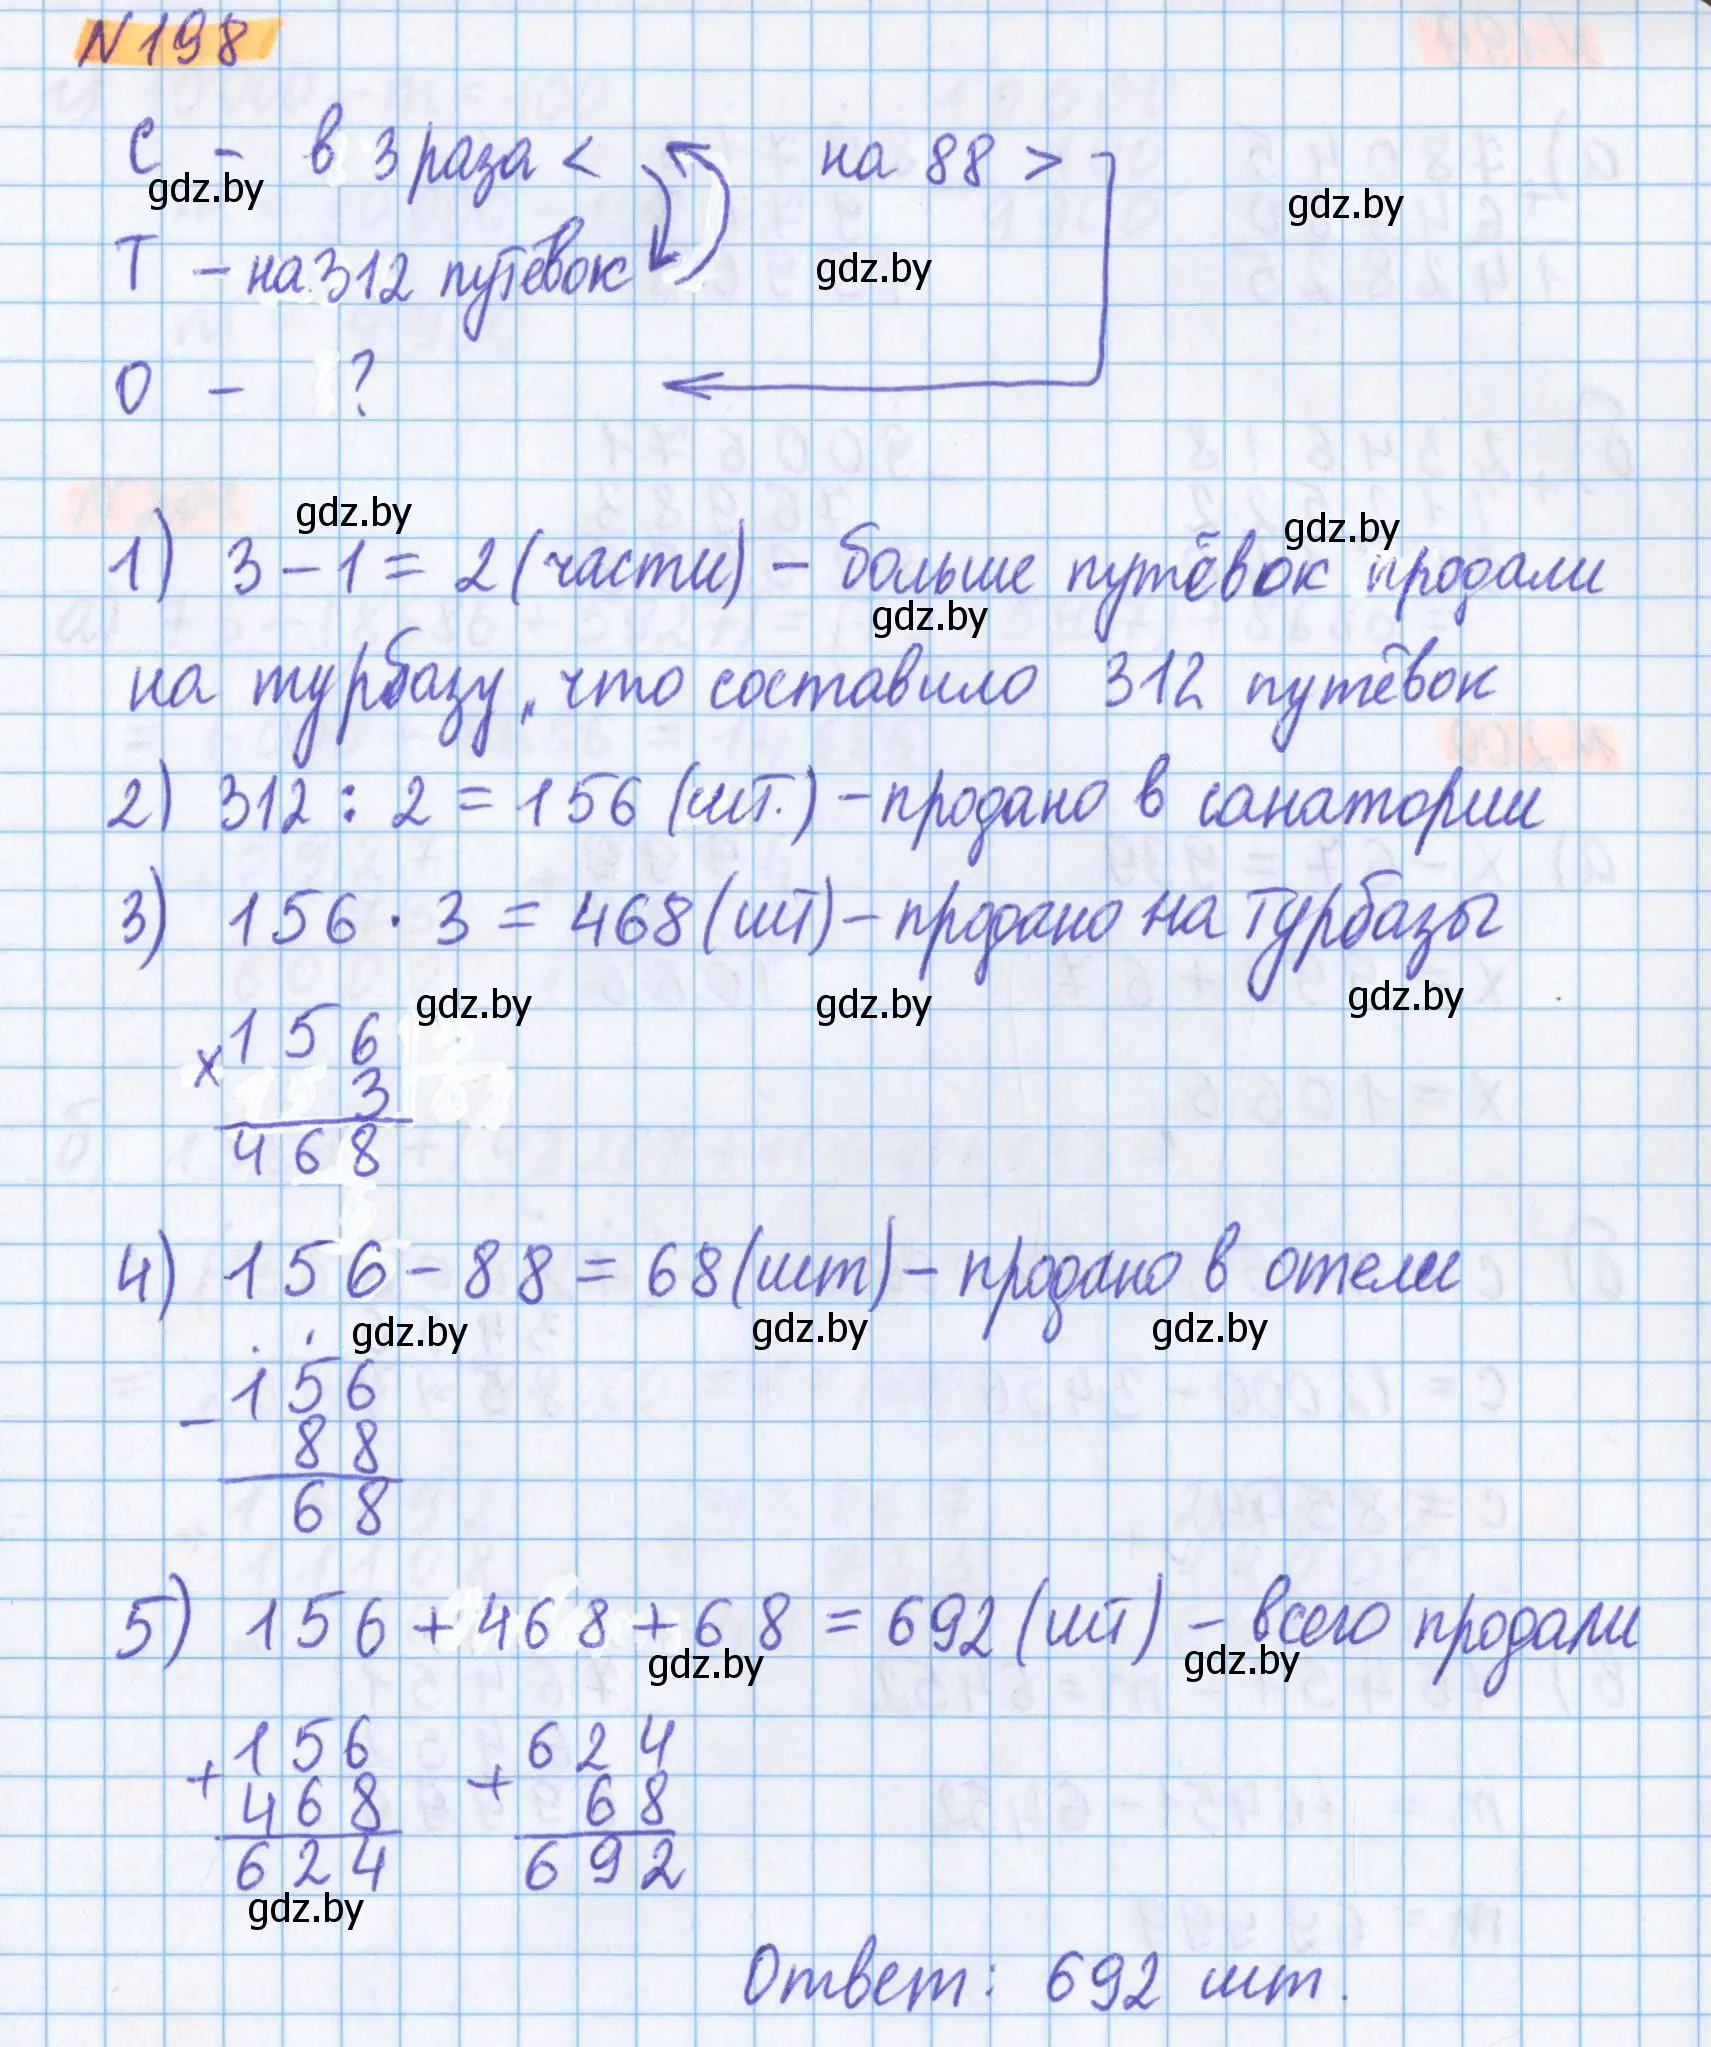 N198
С - в 3 раза < на 88 >
gdz.by gdz.by
Т - на 312 путёвок gdz.by
О - ?
gdz.by gdz.by
1) 3 - 1 = 2 (части) - больше путёвок продали
gdz.by
на турбазу, что составило 312 путёвок
2) 312 : 2 = 156 (шт.) - продано в санатории
3) 156 · 3 = 468 (шт) - продано на турбазы
gdz.by gdz.by gdz.by
× 156
3
468
4) 156 - 88 = 68 (шт) - продано в отели
gdz.by gdz.by gdz.by
- 156
88
68
5) 156 + 468 + 68 = 692 (шт) - всего продали
gdz.by gdz.by
+ 156 + 624
468 68
624 692
gdz.by
Ответ: 692 шт.